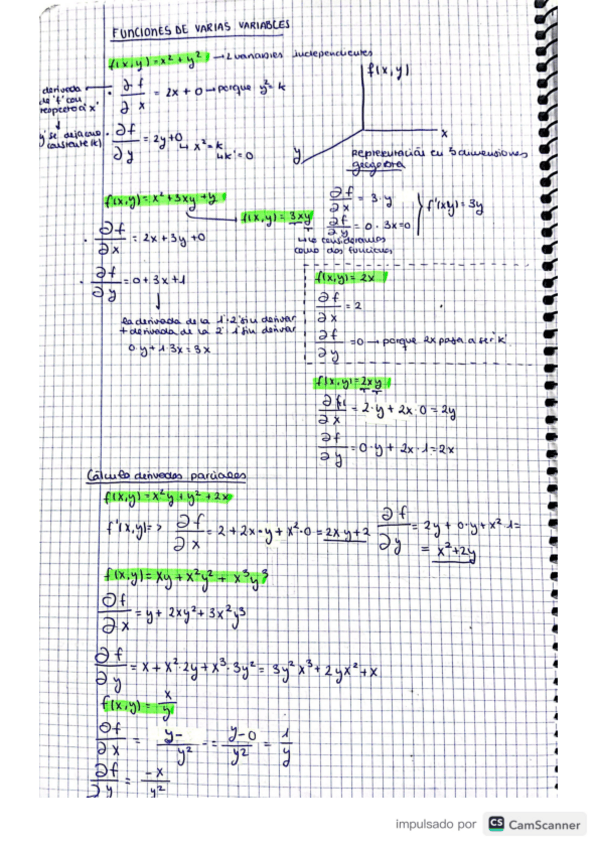 FUNCIONES DE VARIAS VARIABLES
f(x,y) = x² + y² → 2 variables independientes
derivada de 'f' con respecto a 'x'
∂f/∂x = 2x + 0 → porque y² = k
y se deja como constante (k)
∂f/∂y = 2y + 0
↳ x² = k
↳ k' = 0
f(x,y)
x
y
Representación en 3 dimensiones
f(x,y) = x² + 3xy + y
f(x,y) = 3xy
∂f/∂x = 3·y
∂f/∂y = 0·3x = 0
f'(x,y) = 3y
lo consideramos
como dos funciones
∂f/∂x = 2x + 3y + 0
∂f/∂y = 0 + 3x + 1
la derivada de la 1·2 sin derivar
+ derivada de la 2·1 sin derivar
0·y + 1·3x = 3x
f(x,y) = 2x
∂f/∂x = 2
∂f/∂y = 0 → porque 2x pasa a ser 'k'
f(x,y) = 2xy
∂f/∂x = 2·y + 2x·0 = 2y
∂f/∂y = 0·y + 2x·1 = 2x
Cálculo derivadas parciales
f(x,y) = x²y + y² + 2x
f'(x,y) => ∂f/∂x = 2 + 2x·y + x²·0 = 2xy + 2
∂f/∂y = 2y + 0·y + x²·1 =
= x² + 2y
f(x,y) = xy + x²y² + x³y³
∂f/∂x = y + 2xy² + 3x²y³
∂f/∂y = x + x²·2y + x³·3y² = 3y²x³ + 2yx² + x
f(x,y) = x/y
∂f/∂x = y-/y² = y-0/y² = 1/y
∂f/∂y = -x/y²
impulsado por CS CamScanner